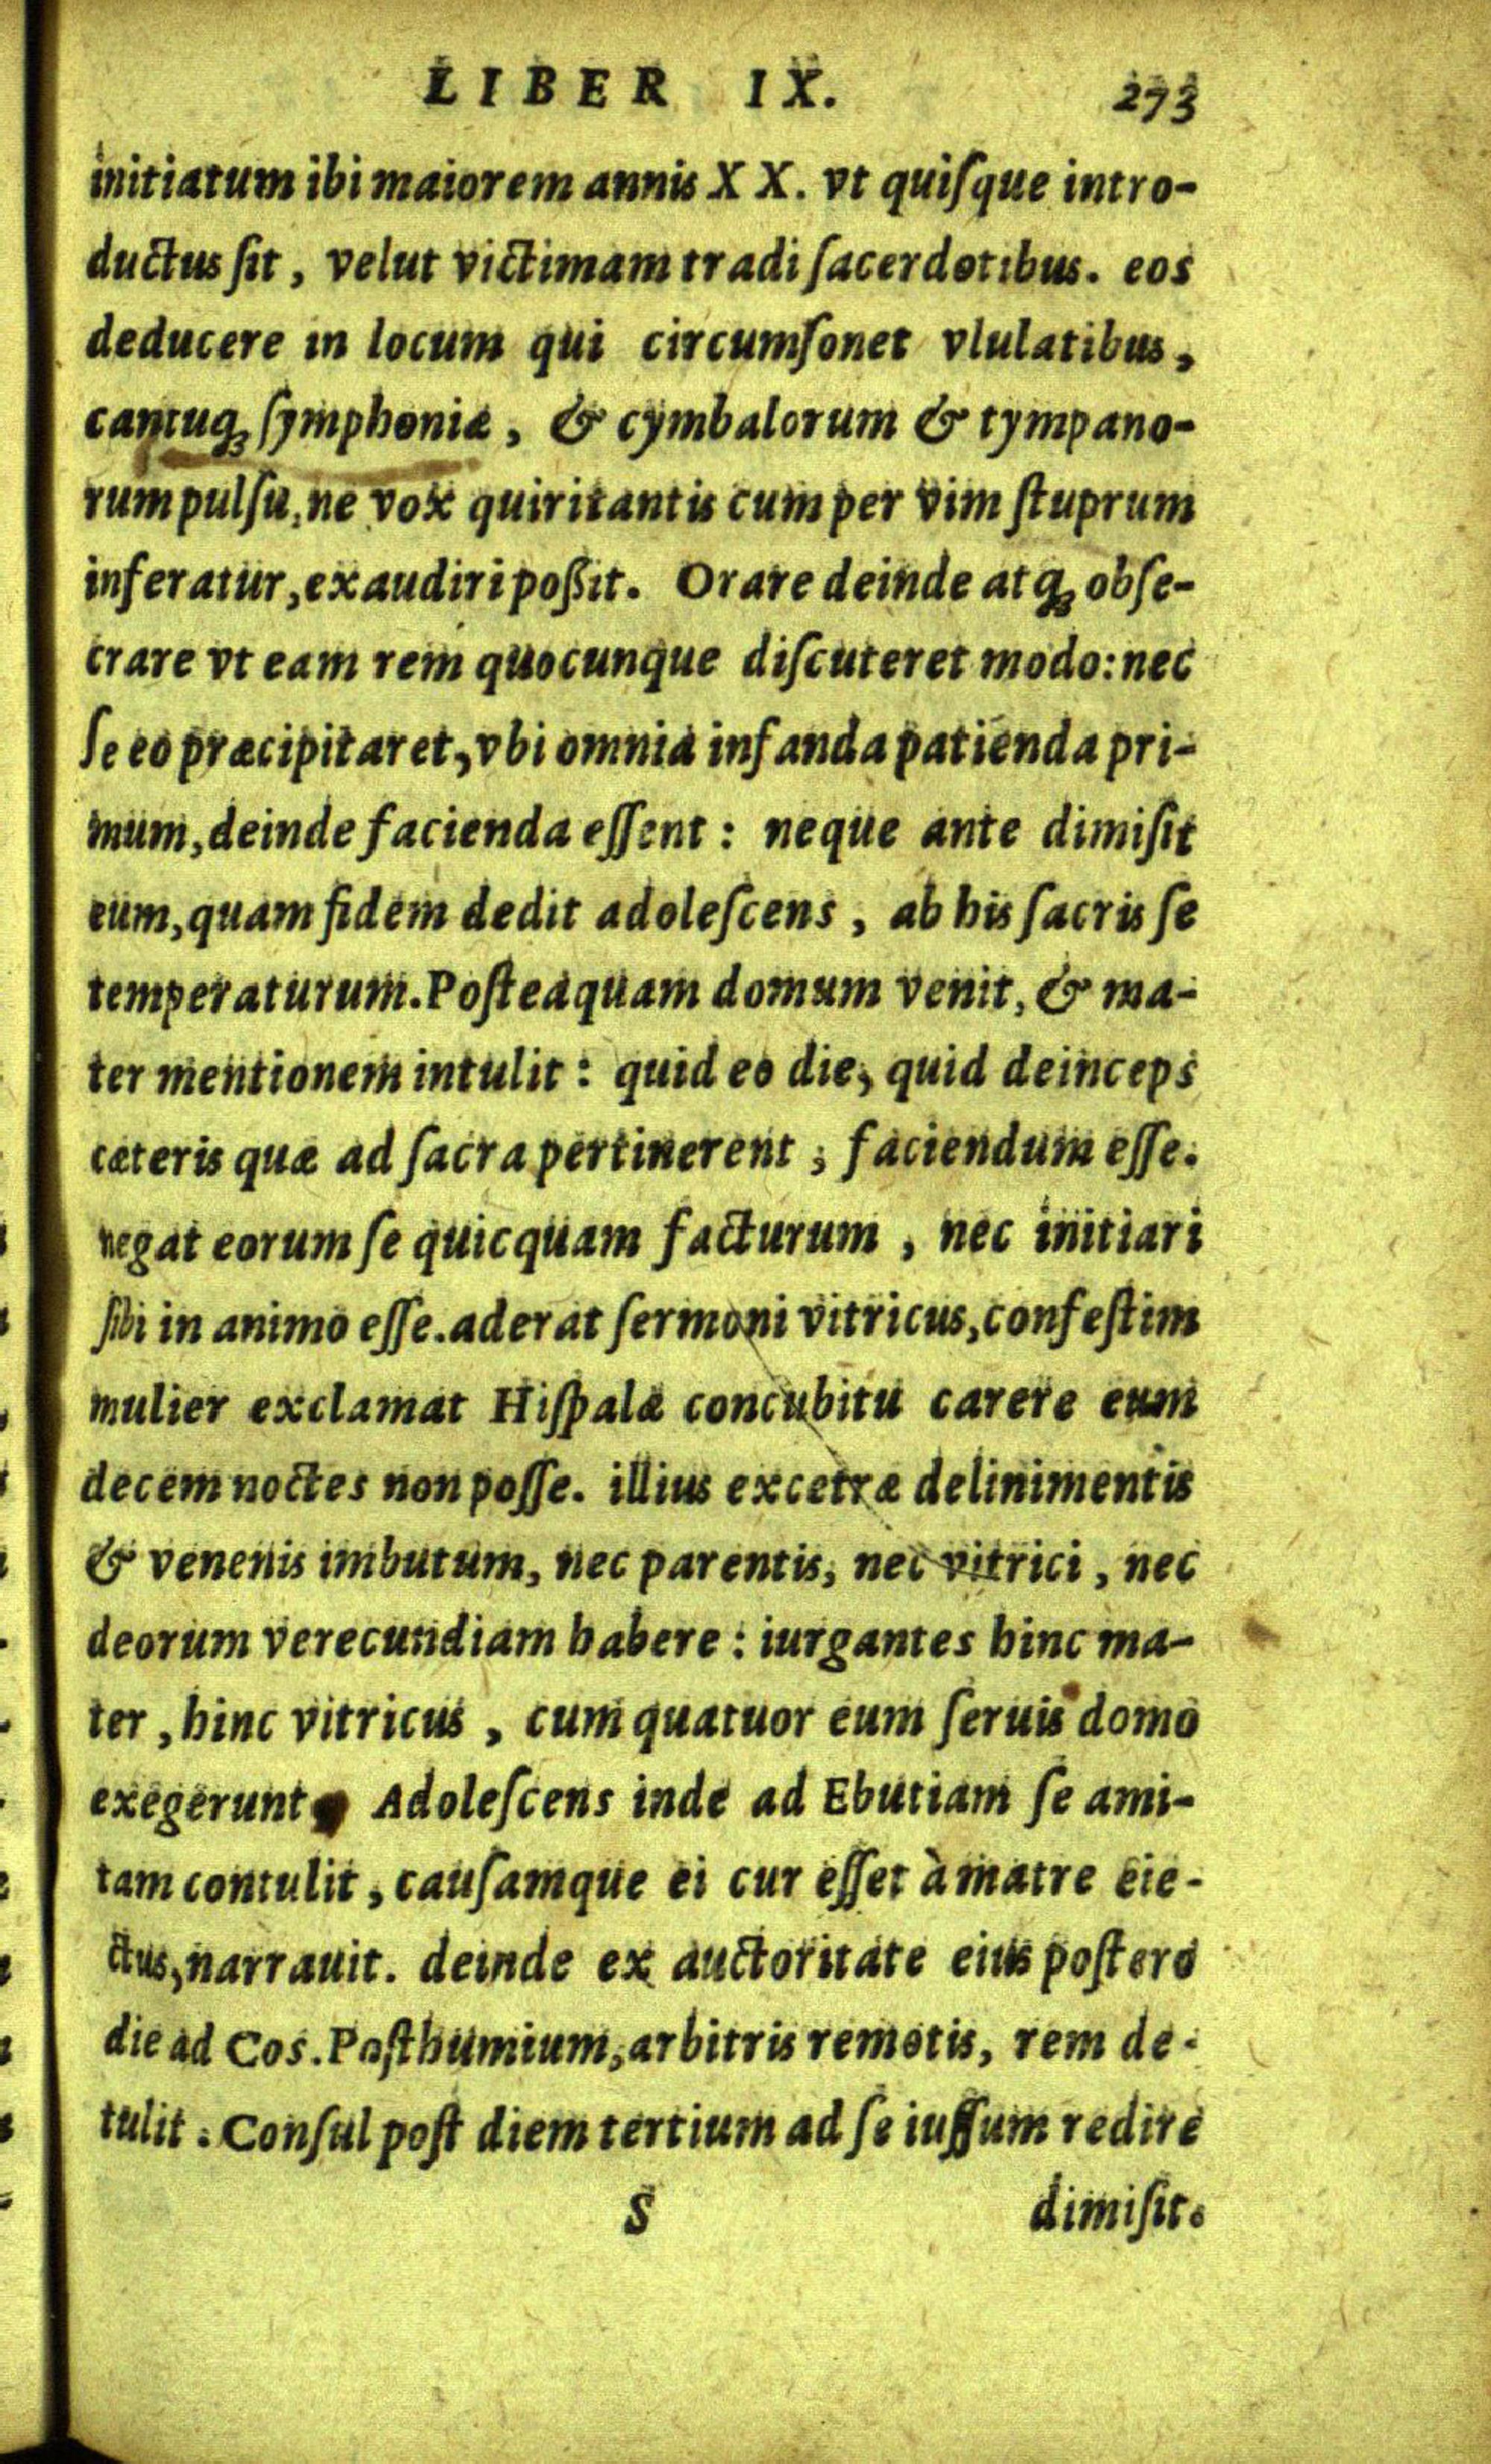 LIBER IX. 273
initiatum ibi maiorem annis XX. vt quiſque intro-
ductus ſit, velut victimam tradi ſacerdotibus. eos
deducere in locum qui circumſonet vlulatibus,
cantuq; ſymphoniæ, & cymbalorum & tympano-
rum pulſu, ne vox quiritantis cum per vim ſtuprum
inferatur, exaudiri poßit. Orare deinde atq; obſe-
crare vt eam rem quocunque diſcuteret modo: nec
ſe eo præcipitaret, vbi omnia infanda patienda pri-
mum, deinde facienda eſſent: neque ante dimiſit
eum, quam fidem dedit adoleſcens, ab his ſacris ſe
temperaturum. Poſteaquam domum venit, & ma-
ter mentionem intulit: quid eo die, quid deinceps
cæteris quæ ad ſacra pertinerent, faciendum eſſe.
negat eorum ſe quicquam facturum, nec initiari
ſibi in animo eſſe. aderat ſermoni vitricus, confeſtim
mulier exclamat Hiſpalæ concubitu carere eum
decem noctes non poſſe. illius excetræ delinimentis
& venenis imbutum, nec parentis, nec vitrici, nec
deorum verecundiam habere: iurgantes hinc ma-
ter, hinc vitricus, cum quatuor eum ſeruis domo
exegerunt. Adoleſcens inde ad Ebutiam ſe ami-
tam contulit, cauſamque ei cur eſſet à matre eie-
ctus, narrauit. deinde ex auctoritate eius poſtero
die ad Cos. Poſthumium, arbitris remotis, rem de-
tulit. Conſul poſt diem tertium ad ſe iuſſum redire
S dimiſit.